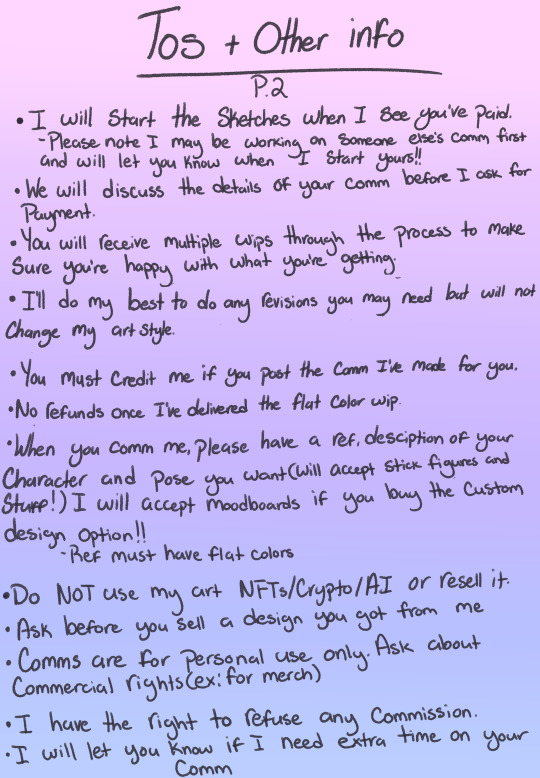 Tos + Other info
P.2
• I will Start the Sketches when I see you've paid.
- Please note I may be working on someone else's comm first
and will let you know when I start yours!!
• We will discuss the details of your comm before I ask for
Payment.
• You will receive multiple wips through the process to make
Sure you're happy with what you're getting.
• I'll do my best to do any revisions you may need but will not
Change my art style.
• You must Credit me if you post the Comm I've made for you.
• No refunds once I've delivered the flat Color wip.
• When you comm me, please have a ref, desciption of your
Character and pose you want (will accept stick figures and
Stuff!) I will accept moodboards if you buy the Custom
design option!!
- Ref must have flat colors
• Do NOT use my art NFTs/Crypto/AI or resell it.
• Ask before you sell a design you got from me
• Comms are for personal use only. Ask about
Commercial rights (ex: for merch)
• I have the right to refuse any Commission.
• I will let you know if I need extra time on your
Comm